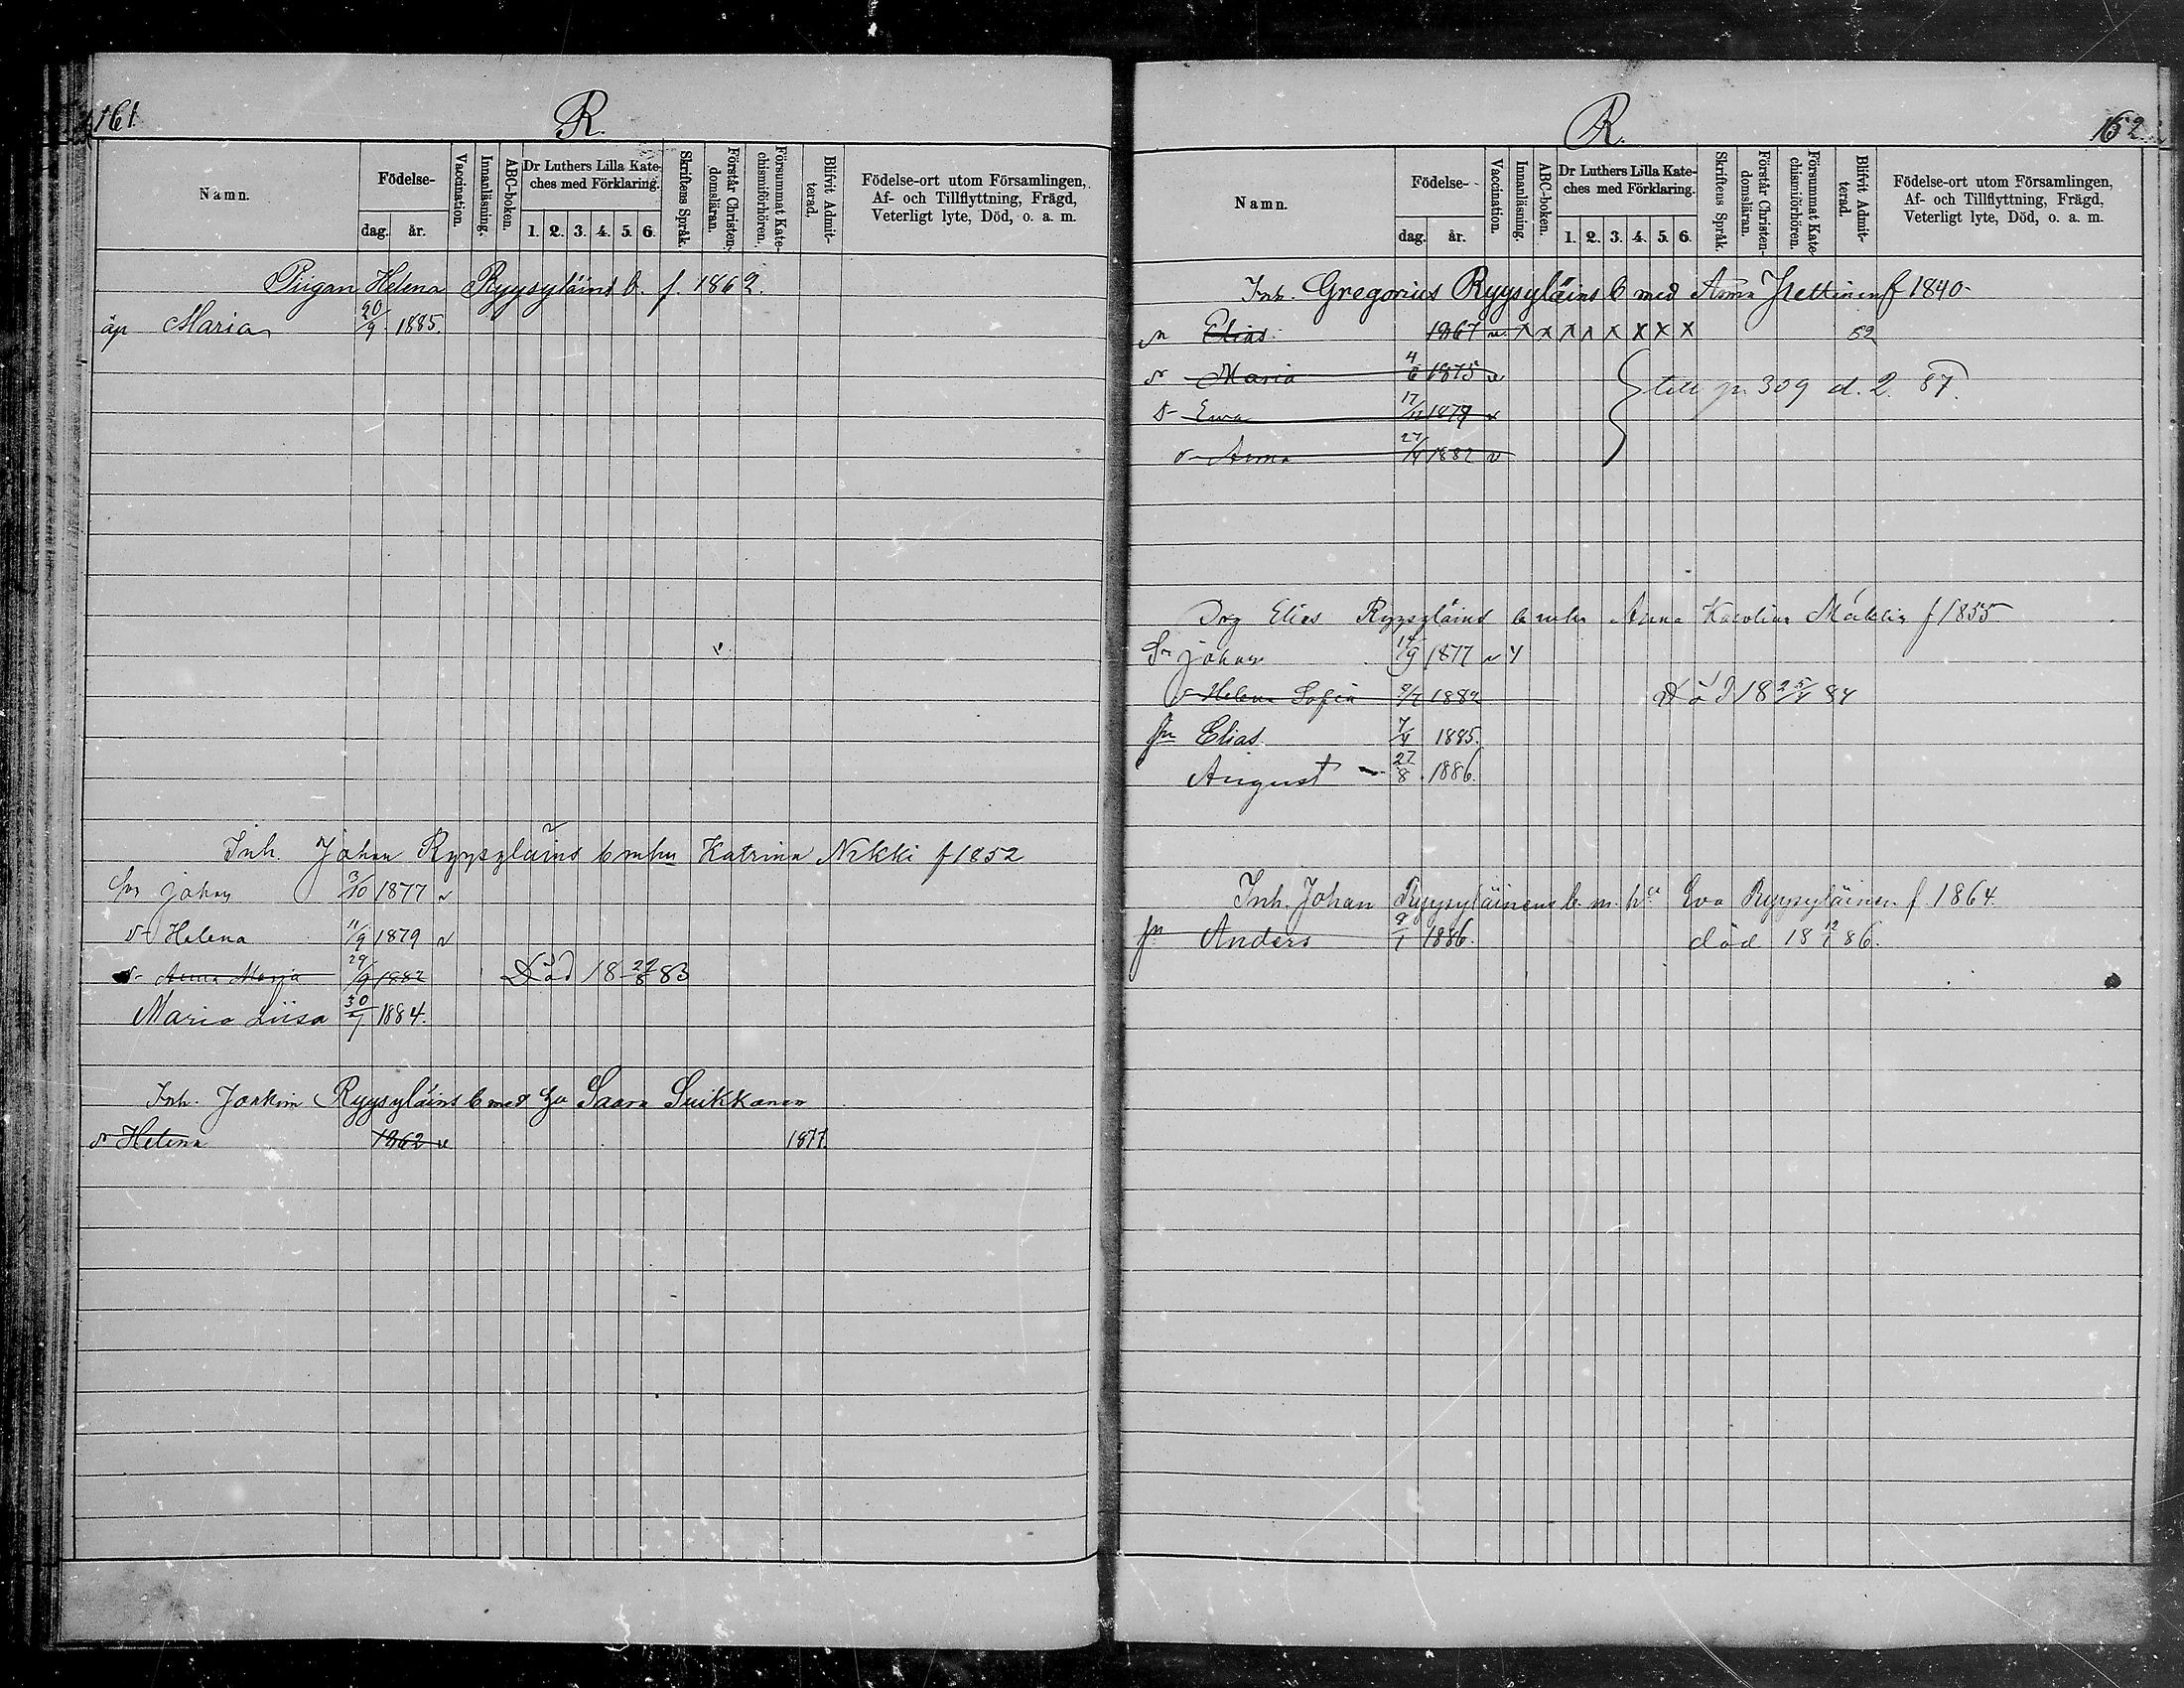 161.
R.
Namn.
Födelse-
dag.
år.
Vaccination.
Innanläsning.
ABC-boken.
Dr Luthers Lilla Kate-
ches med Förklaring.
1. 2. 3. 4. 5. 6.
Skriftens Språk.
Förstår Christen-
domsläran.
Försummat Kate-
chismiförhören.
Blifvit Admit-
terad.
Födelse-ort utom Församlingen,
Af- och Tillflyttning, Frägd,
Veterligt lyte, Död, o. a. m.
Pigan Helena Ryysyläins b. f. 1862.
äp Maria 20/9 1885.
Inh. Johan Ryysyläins b mhu Katrina Nikki f 1852
Sn Johan 3/10 1877 v
dr Helena 11/9 1879 v
dr Anna Maria 29/9 1882 Död 18 22/8 83
Maria Liisa 30/7 1884.
Inh. Joakim Ryysyläins b med hu Saara Suikkanen
dr Helena 1862 v 1877.
R.
162.
Namn.
Födelse-
dag.
år.
Vaccination.
Innanläsning.
ABC-boken.
Dr Luthers Lilla Kate-
ches med Förklaring.
1. 2. 3. 4. 5. 6.
Skriftens Språk.
Förstår Christen-
domsläran.
Försummat Kate-
chismiförhören.
Blifvit Admit-
terad.
Födelse-ort utom Församlingen,
Af- och Tillflyttning, Frägd,
Veterligt lyte, Död, o. a. m.
Inh. Gregorius Ryysyläins b med Anna f 1840
Elias 1867 v x x x x x x x x 82
dr Maria 4/6 1875 v
till p. 309 d. 2 87.
dr Ewa 17/ v
dr Anna 27/4 1882 v
Drg Elias Ryysyläins b mhu Anna Karolina f 1855
Sn Johan 14/9 1877 v
dr Helena Sofia 1882 Död 18 25/4 84
sn Elias 7/4 1885.
August 27/8 1886.
Inh. Johan Ryysyläinens b. m. hu Eva Ryysyläinen f. 1864.
sn Anders 9/1 1886. död 18 12/1 86.